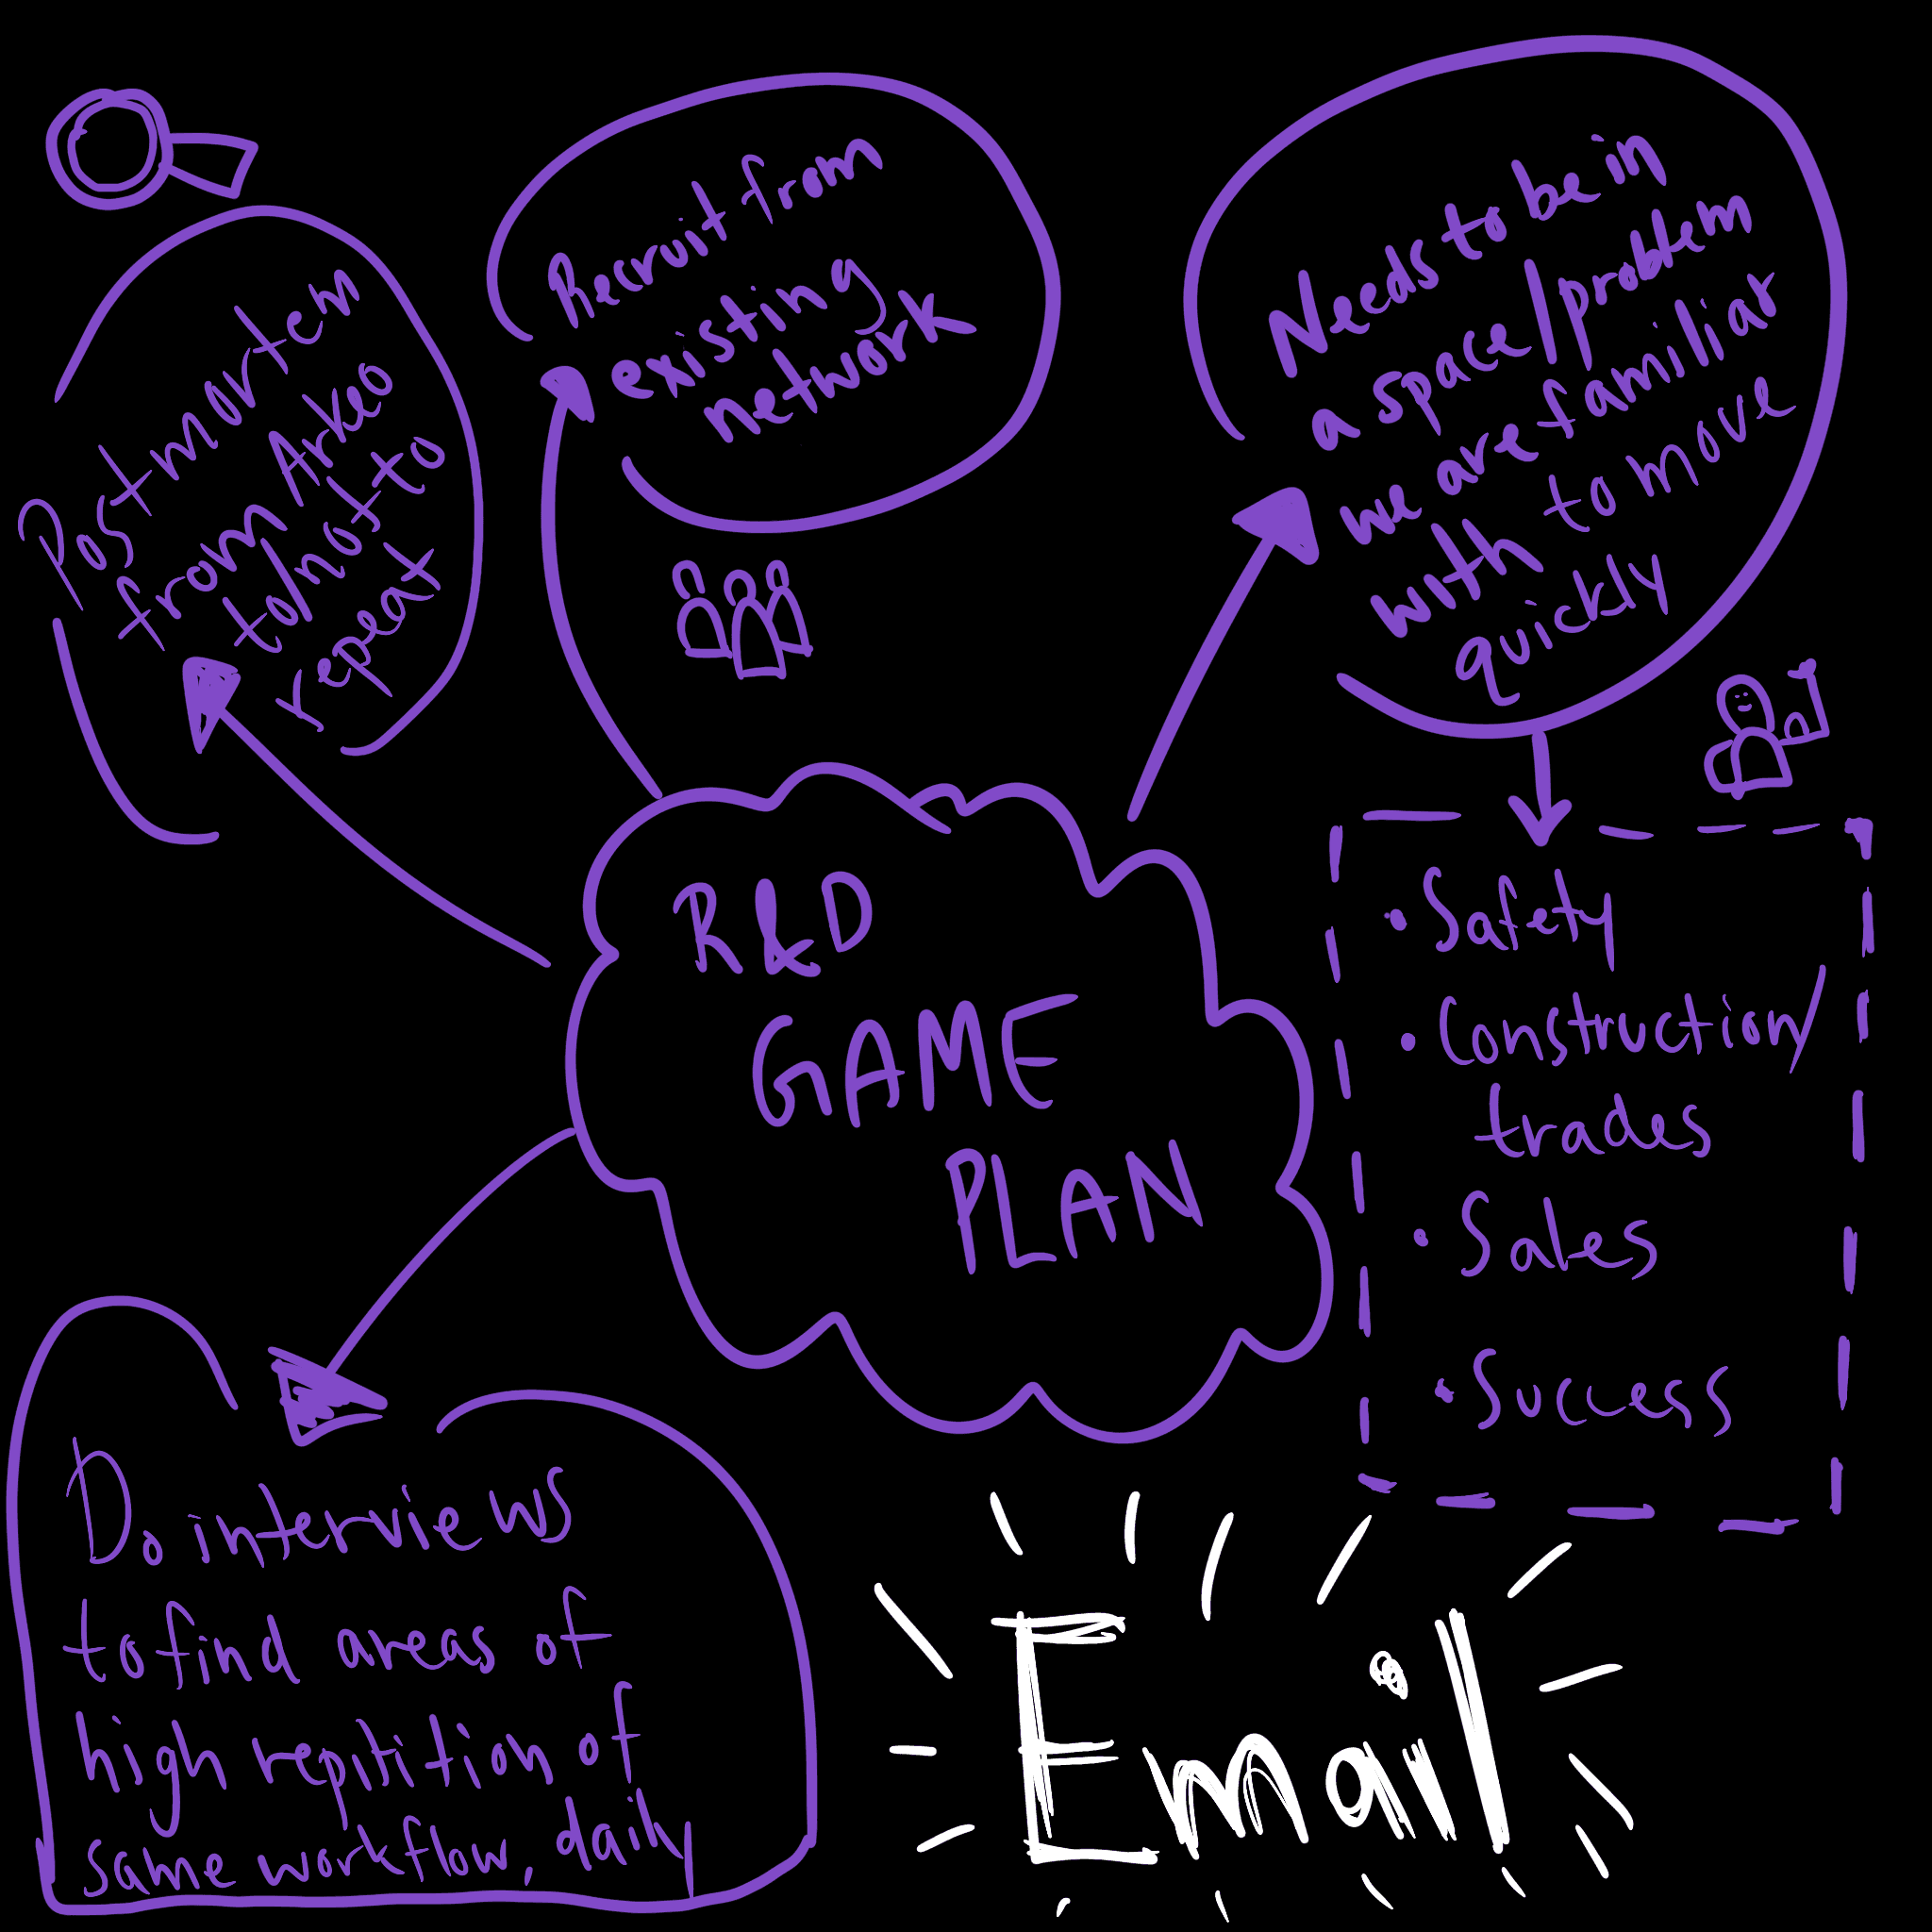 Postmortem
from Arkeo
to not to
repeat
Recruit from
existing
network
Needs to be in
a space/problem
we are familiar
with to move
quickly
R&D
GAME
PLAN
• Safety
• Construction/
trades
• Sales
• Success
Do interviews
to find areas of
high reptition of
same workflow, daily
Email